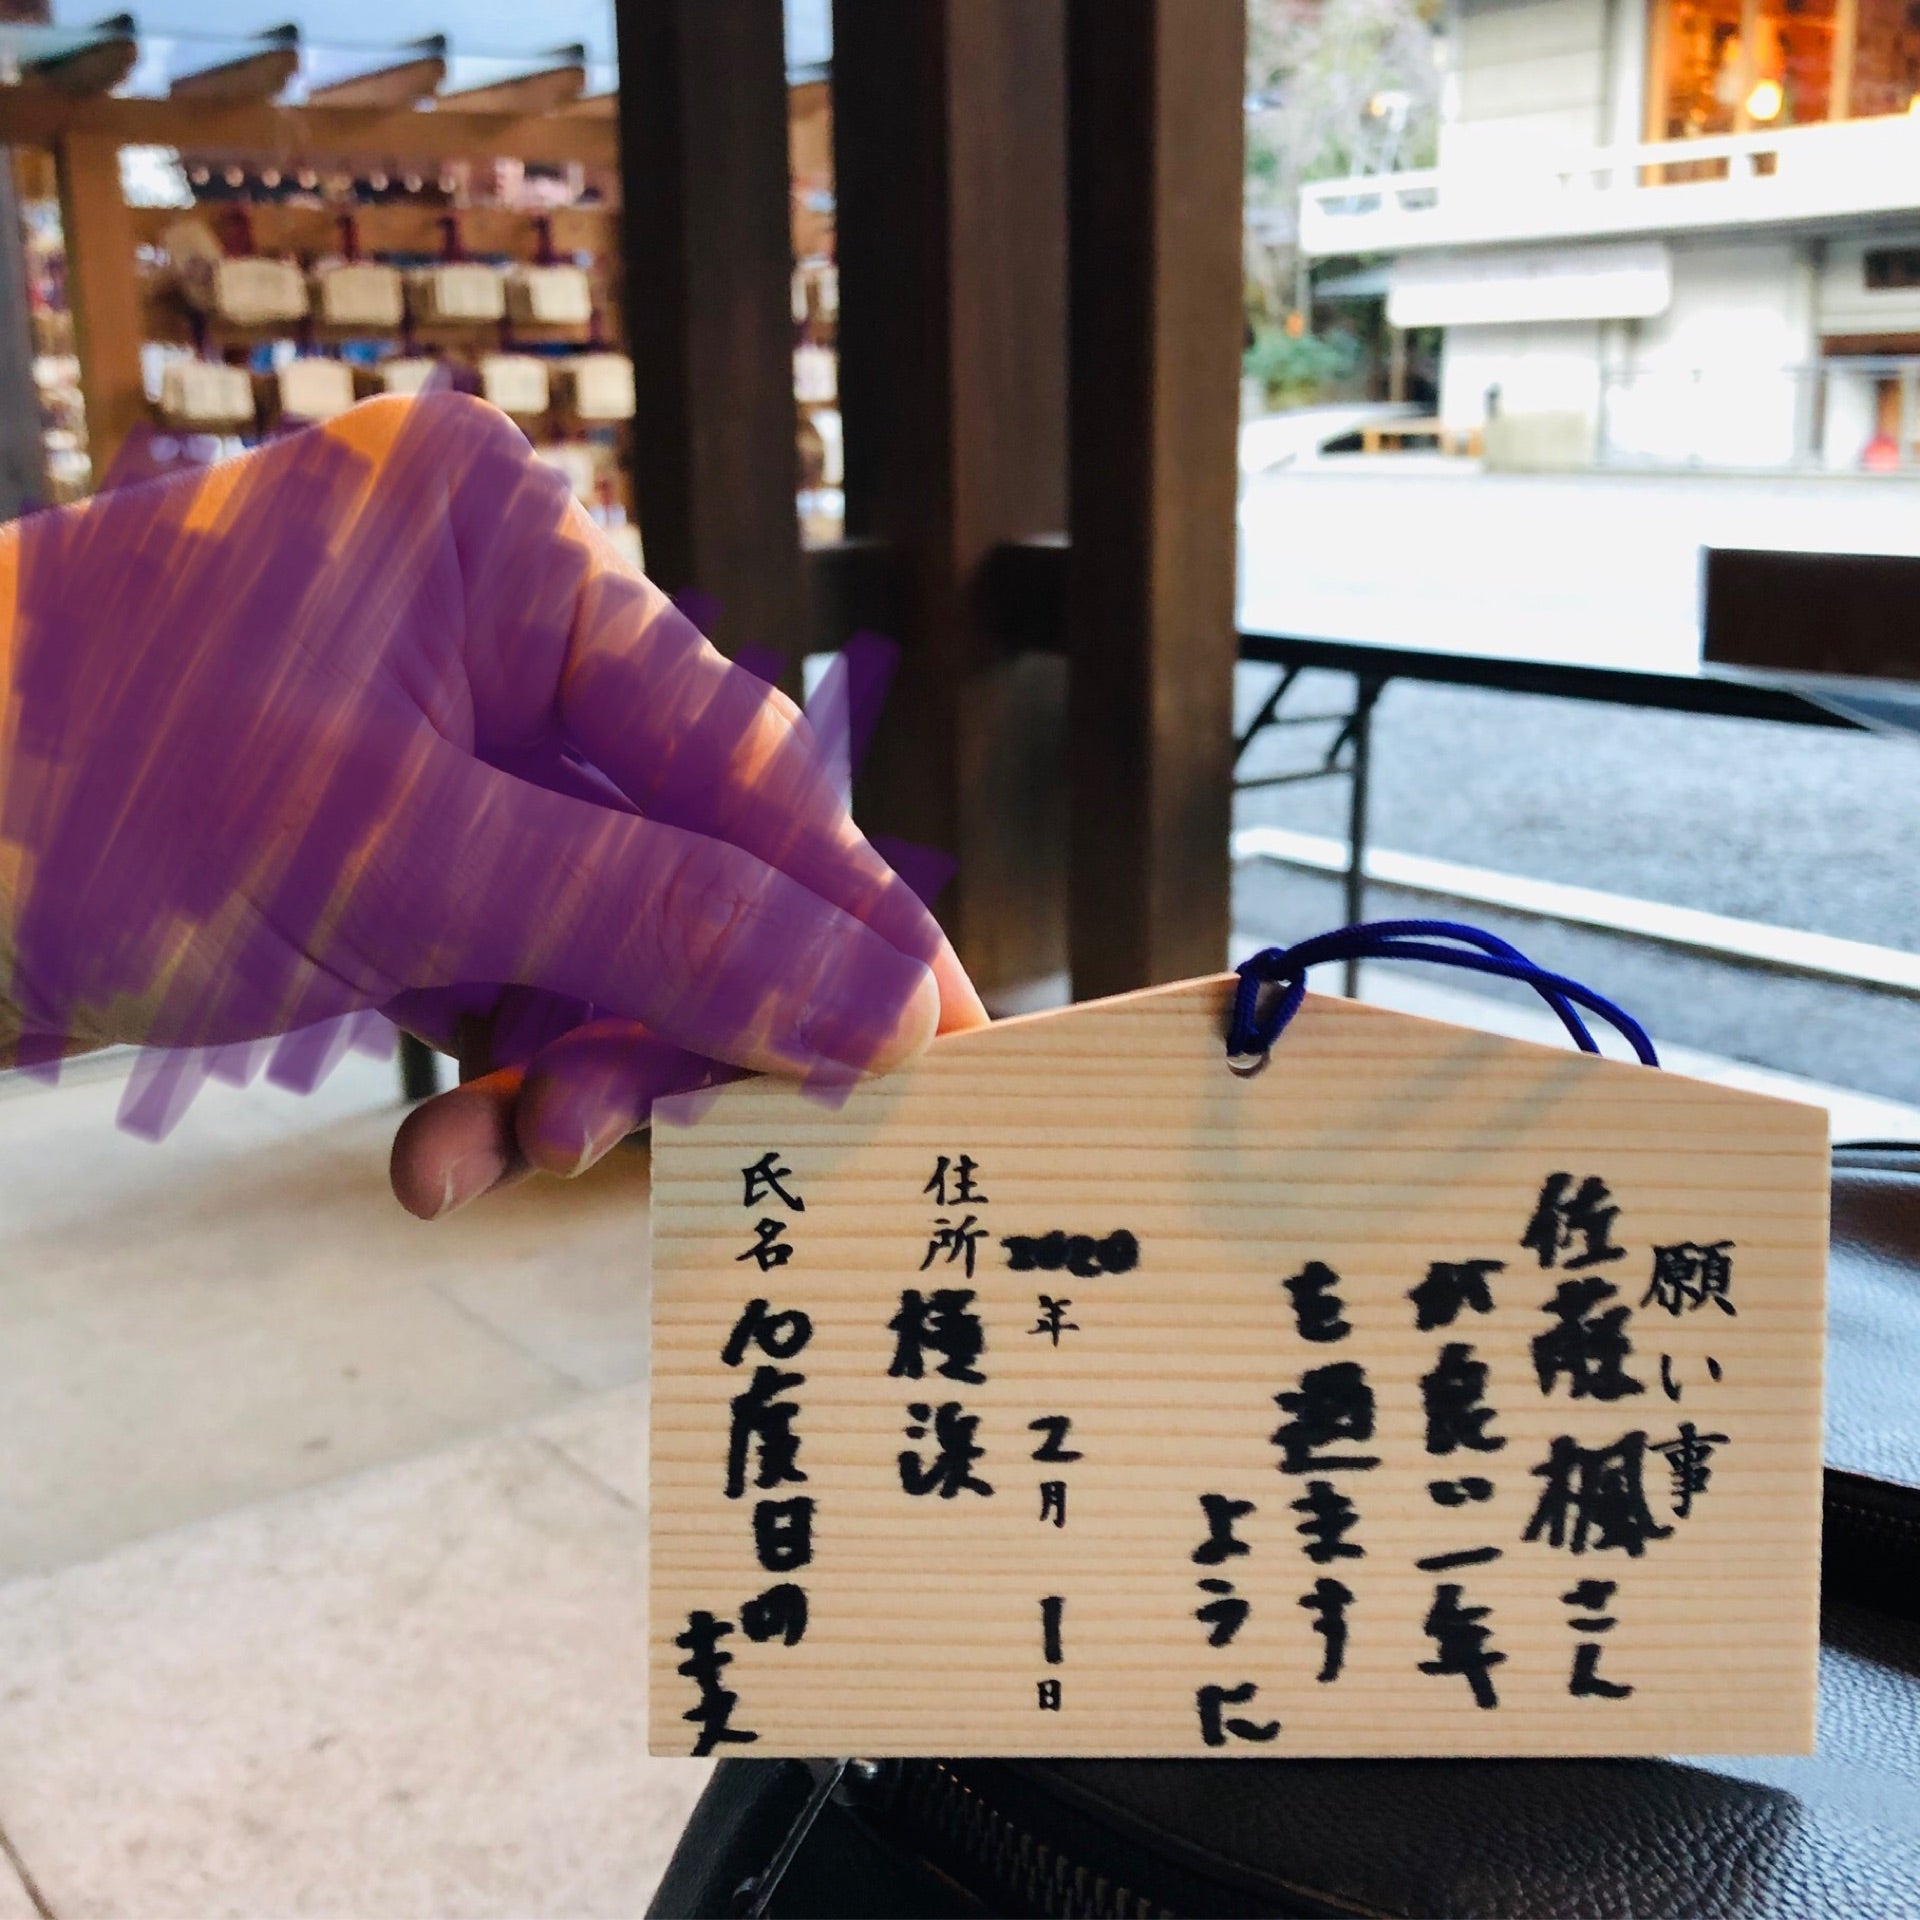 願い事
佐藤楓さん
が良い一年
を過ます
ように
2020年 2月 1日
住所 横浜
氏名 10度日の